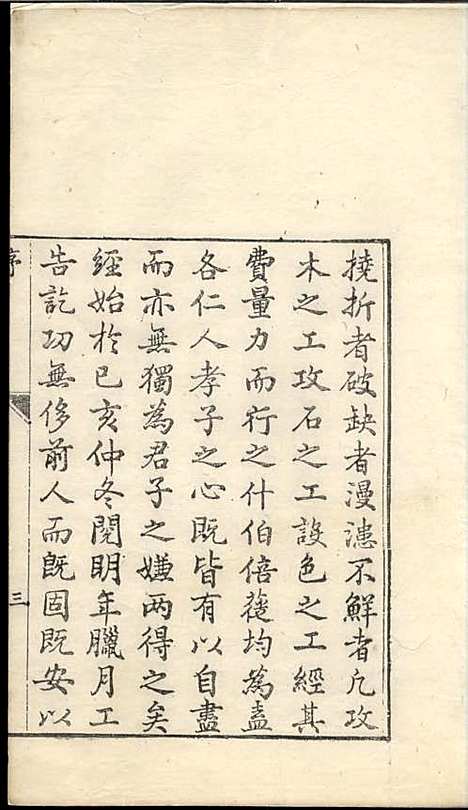 撓折者破缺者漫漶不鮮者凡攻
木之工攻石之工設色之工經其
費量力而行之什伯倍蓰均為盡
各仁人孝子之心既皆有以自盡
而亦無獨為君子之嫌兩得之矣
經始於己亥仲冬閱明年臘月工
告訖功無侈前人而既固既安以
序
三